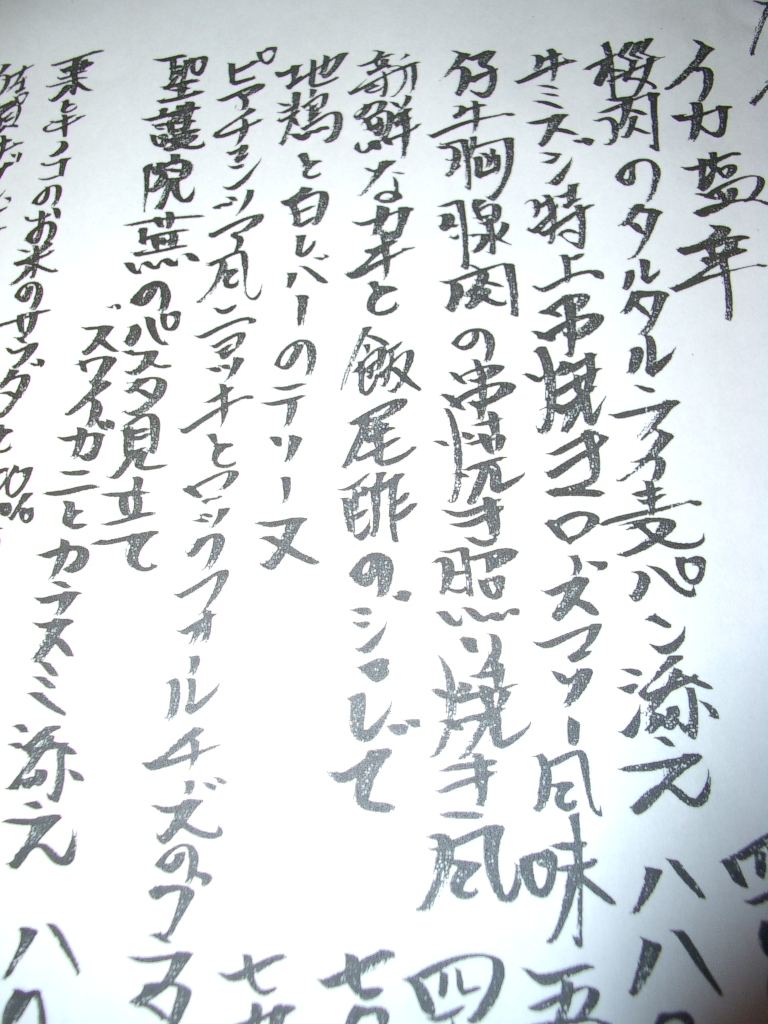 イカ塩辛
桜肉のタルタルライ麦パン添え 八八
牛ミスジ特上串焼きローズマリー風味 五
仔牛胸腺肉の串焼き照り焼き風 四
新鮮なカキと飯尾酢のジュレで 七
地鶏と白レバーのテリーヌ 七
ピアチェンツァ風ニョッキとロックフォールチーズのフ
聖護院蕪のパスタ見立て
ズワイガニとカラスミ添え 八
栗とキノコのお米のサラダと